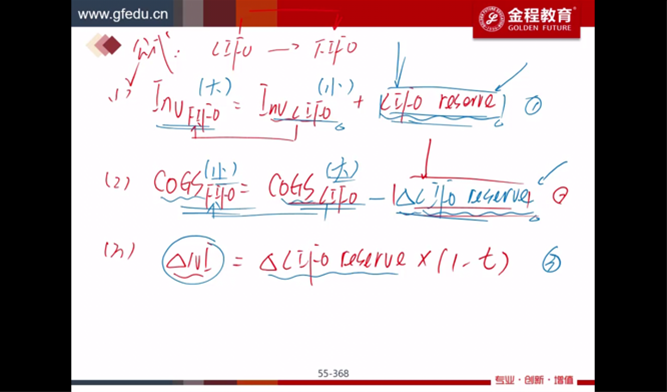 www.gfedu.cn
金程教育
GOLDEN FUTURE
公式: LIFO → FIFO
(1) Inv FIFO (大) = Inv LIFO (小) + LIFO reserve ①
(2) COGS FIFO (小) = COGS LIFO (大) - △LIFO reserve ②
(3) △NI = △LIFO reserve × (1-t) ③
55-368
专业·创新·增值